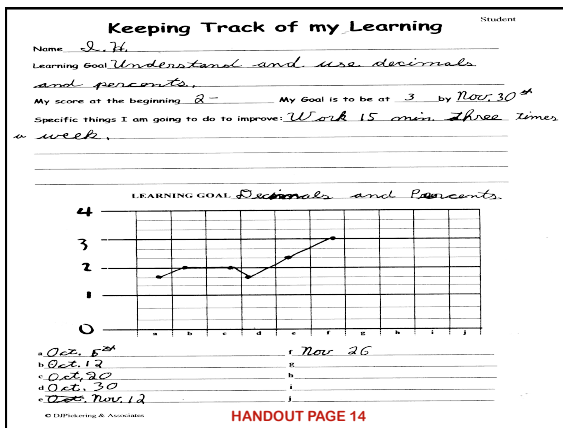 Student
Keeping Track of my Learning
Name I. H.
Learning Goal Understand and use decimals
and percents.
My score at the beginning 2- My Goal is to be at 3 by Nov. 30th
Specific things I am going to do to improve: Work 15 min. three times
a week.
LEARNING GOAL Decimals and Percents.
4
3
2
1
0
a b c d e f g h i j
a Oct. 5th f Nov 26
b Oct. 12 g
c Oct, 20 h
d Oct. 30 i
e Oct. Nov. 12 j
© DJPickering & Associates HANDOUT PAGE 14